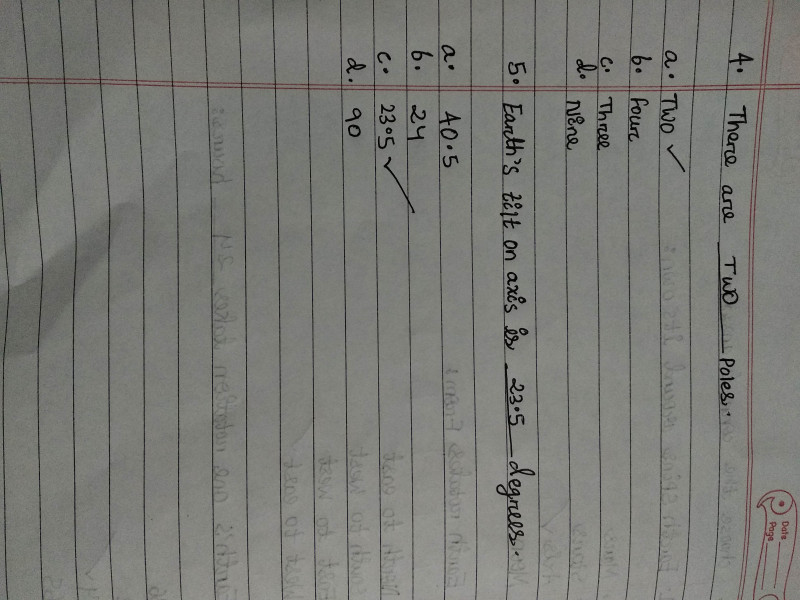 4. There are Two Poles.
a. Two ✓
b. Four
c. Three
d. Nine
5. Earth's tilt on axis is 23.5 degrees.
a. 40.5
b. 24
c. 23.5 ✓
d. 90
Date
Page